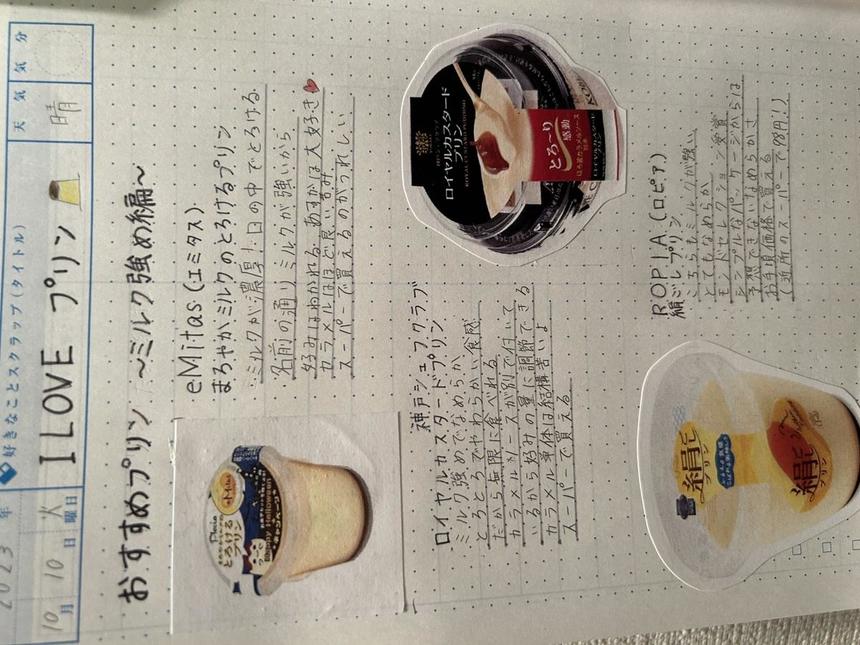 2023 年
10月 10日 火曜日
好きなことスクラップ(タイトル)
I LOVE プリン
天 気
晴
気 分
おすすめプリン ～ミルク強め編～
eMitas(エミタス)
まろやかミルクのとろけるプリン
・ミルクが濃厚!口の中でとろける
名前の通りミルクが強いから
好みはわかれる あすかは大好き♥
カラメルはほど良い苦み
スーパーで買えるのがうれしい
Plecia
とろける
プリン
eMitas
Happy Halloween
キャンペーン
神戸シェフクラブ
ロイヤルカスタードプリン
ミルク強めでなめらか
とろとろでやわらかい食感
だから無限に食べれる
カラメルソースが別で付いて
いるから好みの量に調節できる
カラメル単体は結構苦いよ
スーパーで買える
ロイヤルカスタード
プリン
ROYAL CUSTARD PUDDING
とろ～り
感動
ほろ苦カラメルソース
別添
ロイヤルカスタード
プリン
ROPIA(ロピア)
絹ごしプリン
こちらもミルクが強い
とてもなめらか
モンドセレクション受賞
シンプルなパッケージからは
予想できないなめらかさ
お手頃価格で買える
(近所のスーパーで98円!)
絹ごし
プリン
絹ごし
プリン